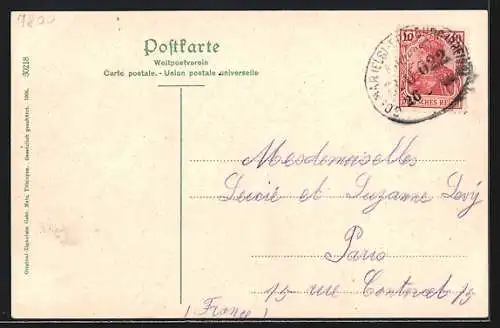 7800
Postkarte
Weltpostverein
Carte postale. - Union postale universelle
30218
Original-Eigentum Gebr. Metz, Tübingen. Gesetzlich geschützt. 1906.
10
DEUTSCHES REICH
Mesdemoiselles
Lucie et Suzanne Levÿ
Paris
15 rue 15
(France)